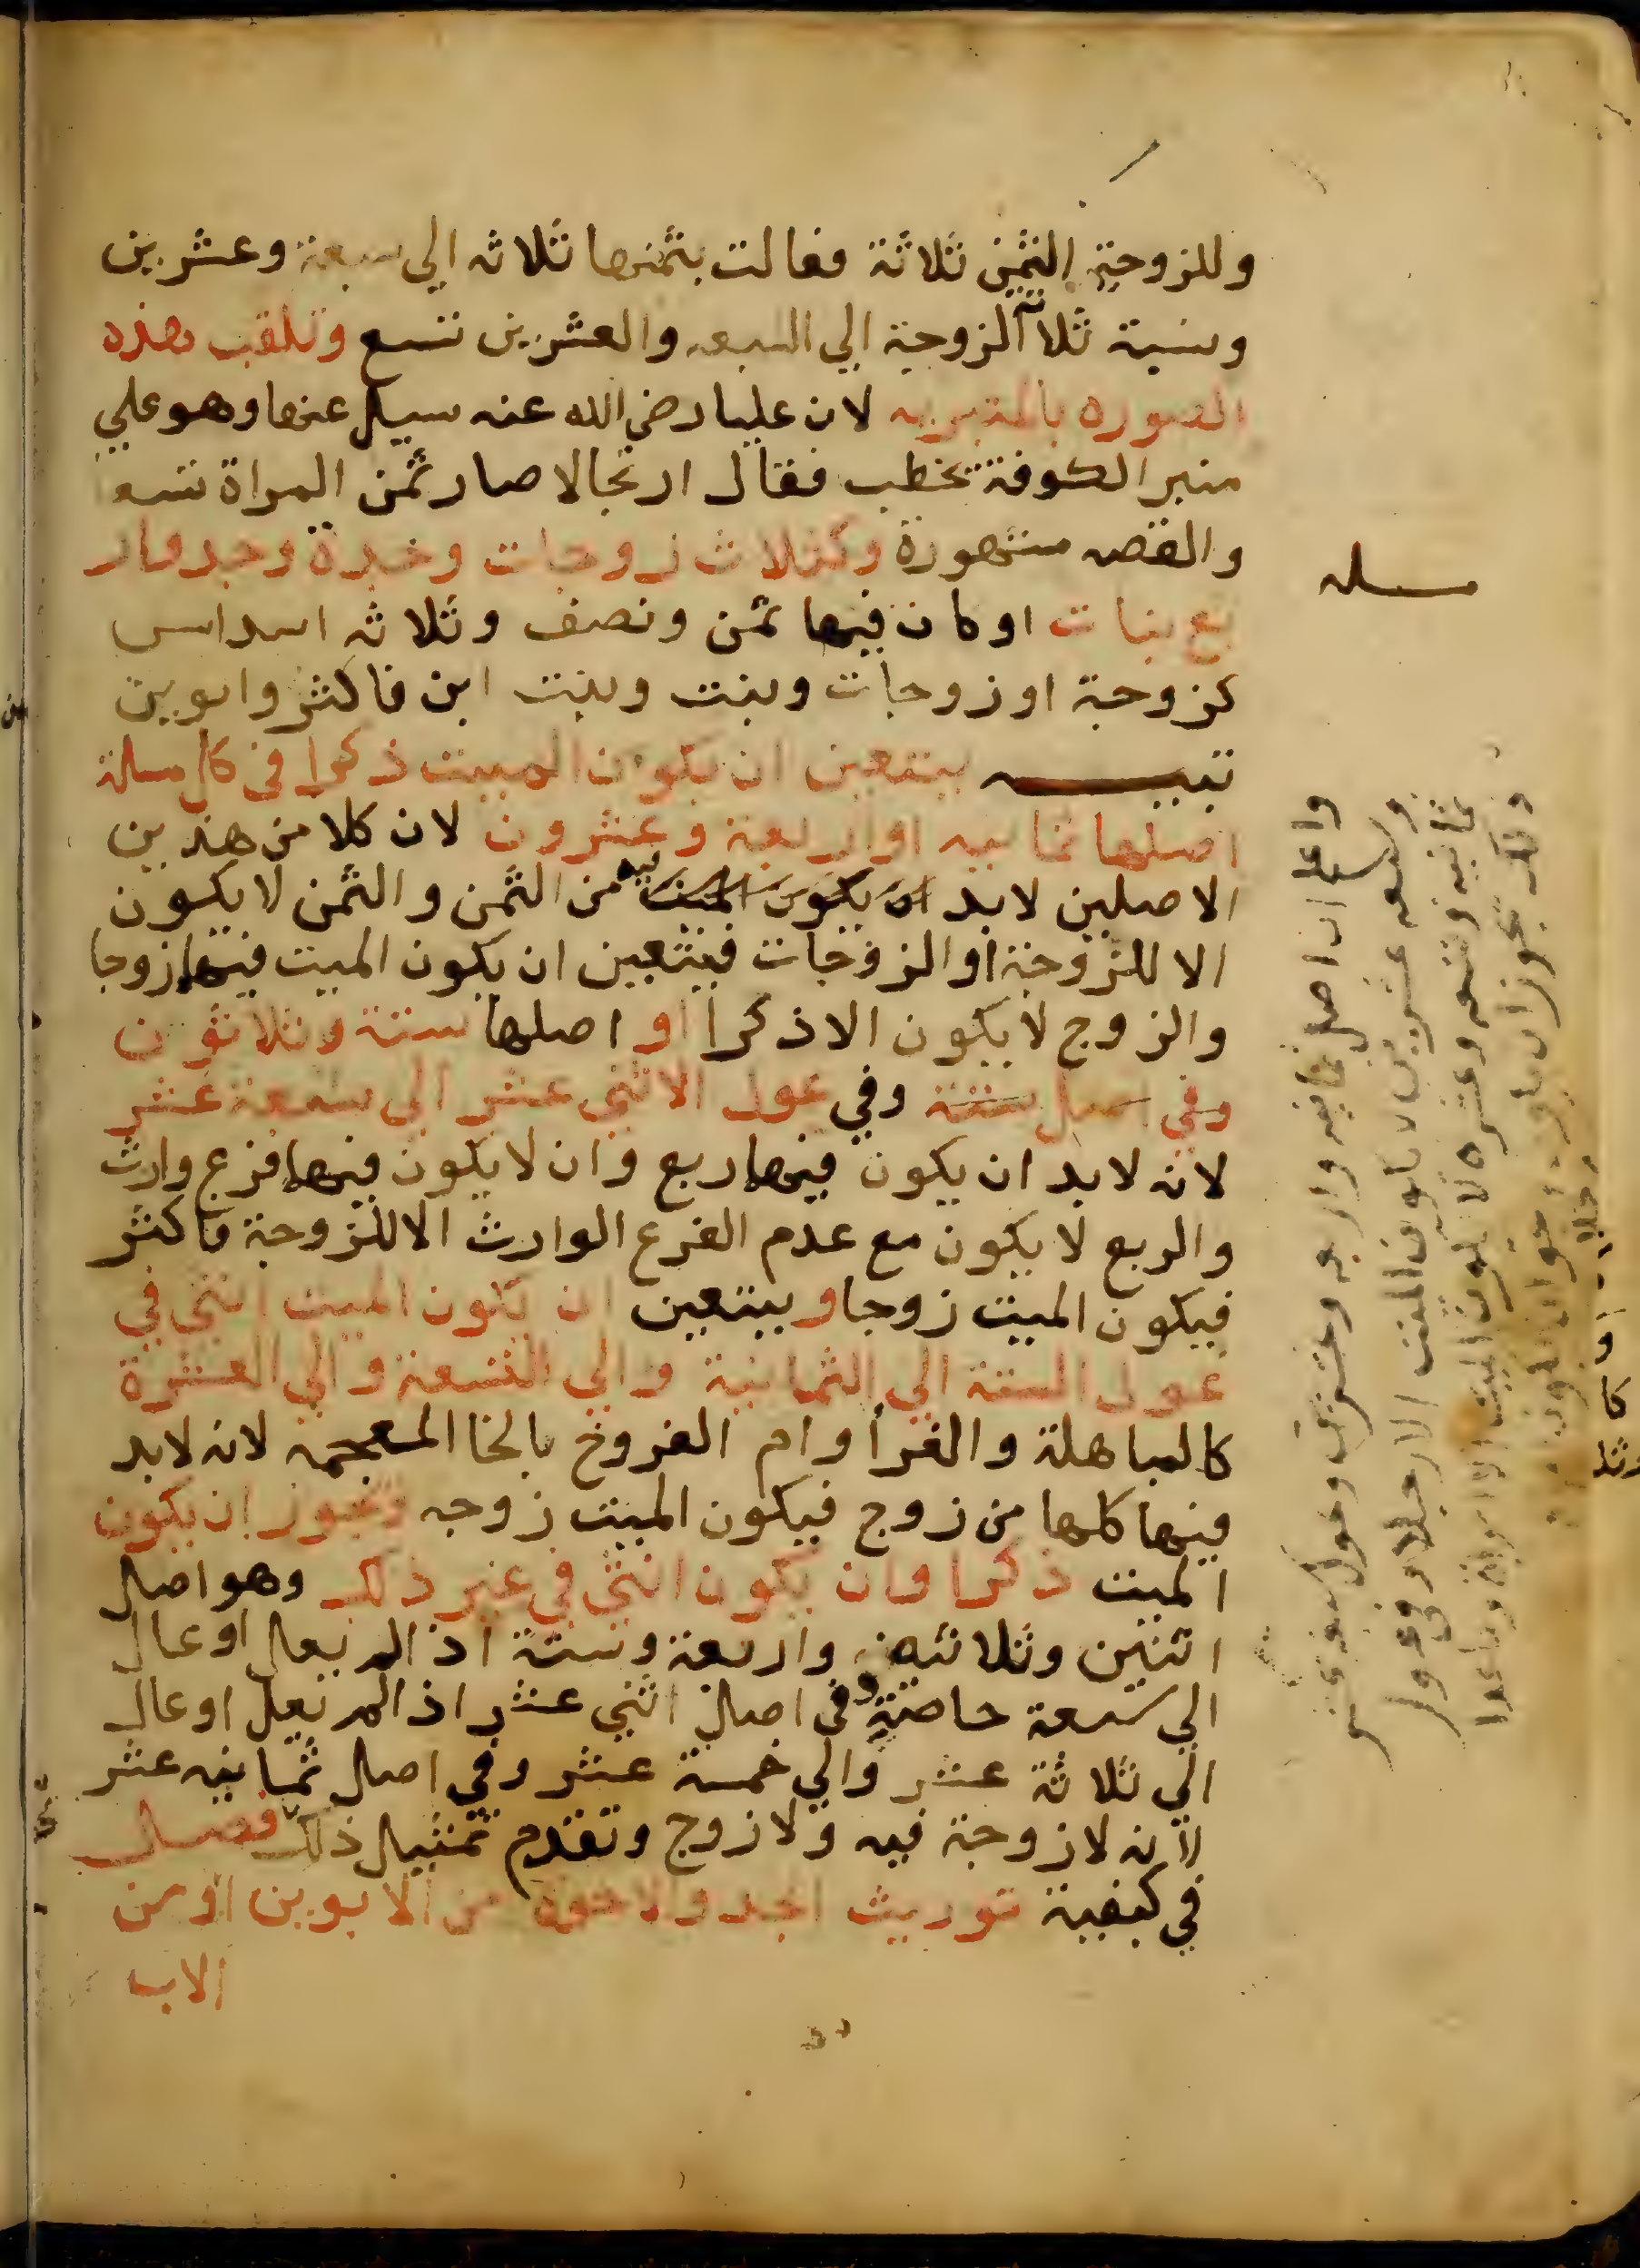 وللزوجة الثمن ثلاثة فعالت بثمنها ثلاثه الي سبعة وعشرين
ونسبة ثلاثة الزوجة الي السبعه والعشرين تسع وتلقب هذه
الصوره بالمنبريه لان عليا رضي الله عنه سيل عنها وهو علي
منبر الكوفة يخطب فقال ارتجالا صار ثمن المراة تسعا
والقصه مشهورة وكثلاث زوجات وجدة وجد وار
بع بنات او كان فيها ثمن ونصف وثلاثه اسداس
كزوجة او زوجات وبنت وبنت ابن فاكثر وابوين
تنبيـــه يتعين ان يكون الميت ذكرا في كل مسلة
اصلها ثمانيه او اربعة وعشرون لان كلا من هذين
الاصلين لابد ان يكون الميت فيه من الثمن والثمن لا يكون
الا للزوجة او الزوجات فيتعين ان يكون الميت فيها زوجا
والزوج لا يكون الا ذكرا او اصلها ستة وثلاثون
وفي اصل ستة وفي عول الاثني عشر الي سبعة عشر
لانه لابد ان يكون فيها ربع وان لا يكون فيها فرع وارث
والربع لا يكون مع عدم الفرع الوارث الا للزوجة فاكثر
فيكون الميت زوجا ويتعين ان يكون الميت انثي في
عول الستة الي الثمانية والي التسعة والي العشرة
كالمباهلة والغرا وام الفروخ بالخا المعجمه لانه لابد
فيها كلها من زوج فيكون الميت زوجه ويجوز ان يكون
الميت ذكرا وان يكون انثي في غير ذلك وهو اصل
اثنين وثلاثة واربعة وستة اذا لم يعل او عال
الي سبعة خاصة وفي اصل اثني عشر اذا لم يعل او عال
الي ثلاثة عشر والي خمسة عشر وفي اصل ثمانيه عشر
لانه لا زوجة فيه ولا زوج وتقدم تمثيل ذلك فصل
في كيفية توريث الجد والاخوة من الابوين او من
الاب
مسله
واعلم ان اصل ثمانيه واربعه وعشرين وعول سبعه عشر
وسبعه عشرين لا يكون الميت الا رجلا وفي عول
ثمانيه وتسعه وعشره لا يكون الميت الا امراة وما عدا
ذلك يجوز ان يكون